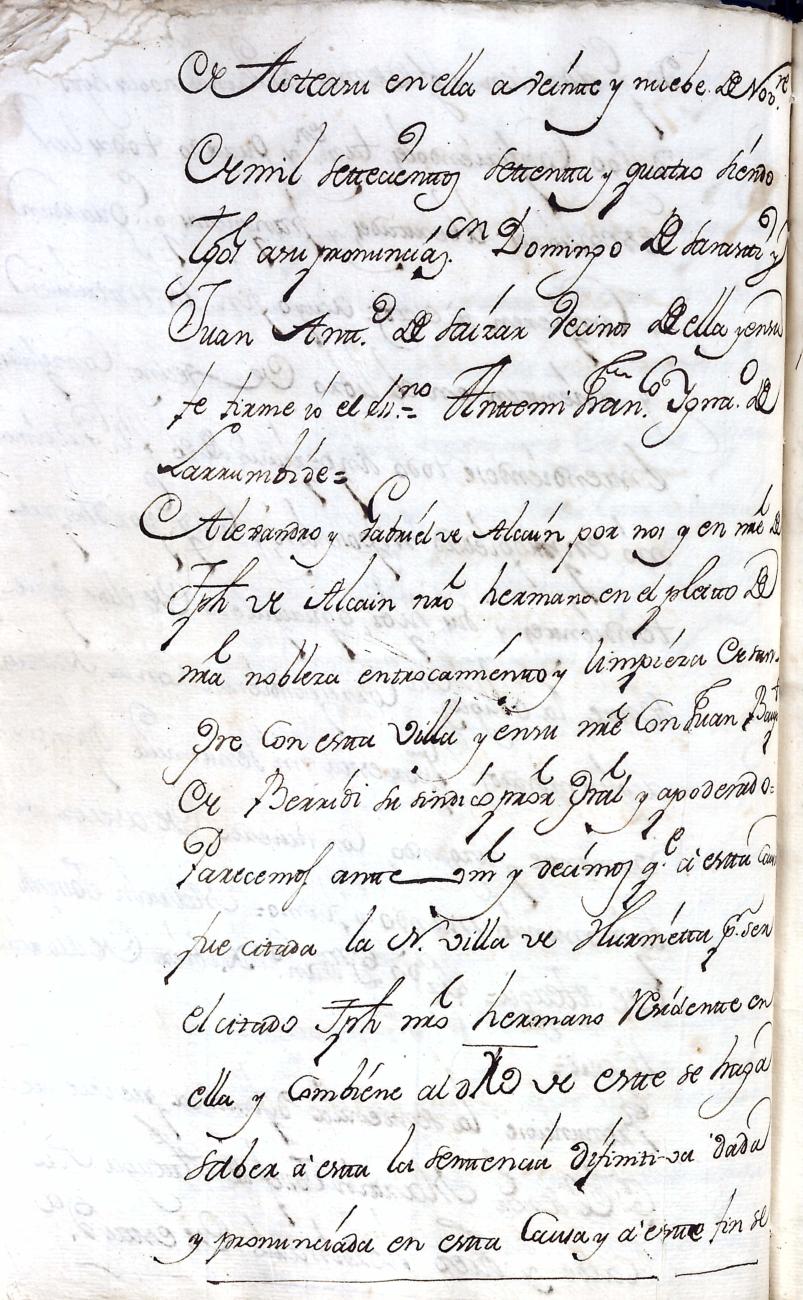 de Asteasu en ella a veinte y nuebe de Nov.re
de mil settecienttos settentta y quatro siendo
tgos a su pronunciaz.on Domingo de Sarasti y
Juan Antt.o de Saizar vecinos de ella y en su
fe firme io el ess.no = Anttemi Fran.co Ygna.o de
Larrumbide =
Alexandro y Gabriel de Alcain por nos y en nre de
Jph de Alcain nro hermano en el pleito de
nra nobleza entrocamientto y limpieza de san-
gre con estta Villa y en su nre con Juan Baut.
de Berribi su sindico pror Gral y apoderado =
Parecemos antte Vm y decimos q.e a estta Caus
fue citada la N. villa de Hurnietta p.r ser
el citado Jph nro hermano residentte en
ella y combiene al dro de estte se haga
saber a estta la senttencia difinitiva dada
y pronunciada en estta Causa y a estte fin se